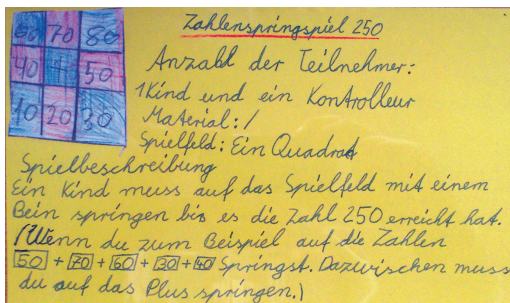 Zahlenspringspiel 250
60 70 80
40 + 50
10 20 30
Anzahl der Teilnehmer:
1 Kind und ein Kontrolleur
Material: /
Spielfeld: Ein Quadrat
Spielbeschreibung
Ein Kind muss auf das Spielfeld mit einem
Bein springen bis es die Zahl 250 erreicht hat.
(Wenn du zum Beispiel auf die Zahlen
50 + 70 + 60 + 30 + 40 Springst. Dazwischen muss
du auf das Plus springen.)